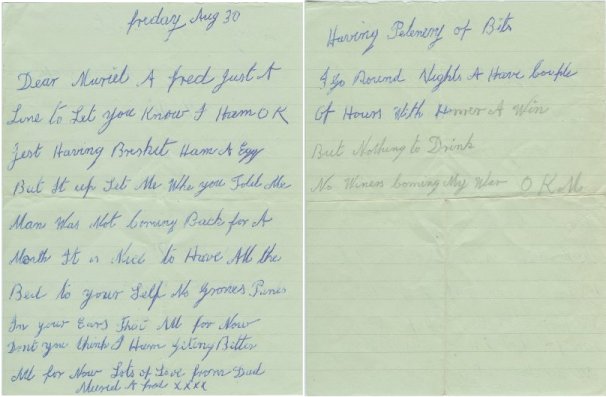 friday Aug 30
Dear Muriel A fred Just A
Line to Let you Know I Ham OK
Jest Having Breskit Ham A Egg
But It up Let Me Whe you Told Me
Man Was Not Coming Back for A
Month It is Nice to Have All the
Bed to your Self No Grones
In your Ears That All for Now
Dont you think I Ham Giting Bitter
All for Now Lots of Love from Dad
Muriel A fred xxxx
Having Pelenery of Bits
I Go Round Nights A Have Couple
Of Hours With Homer A Win
But Nothing to Drink
No Winers Coming My War O K